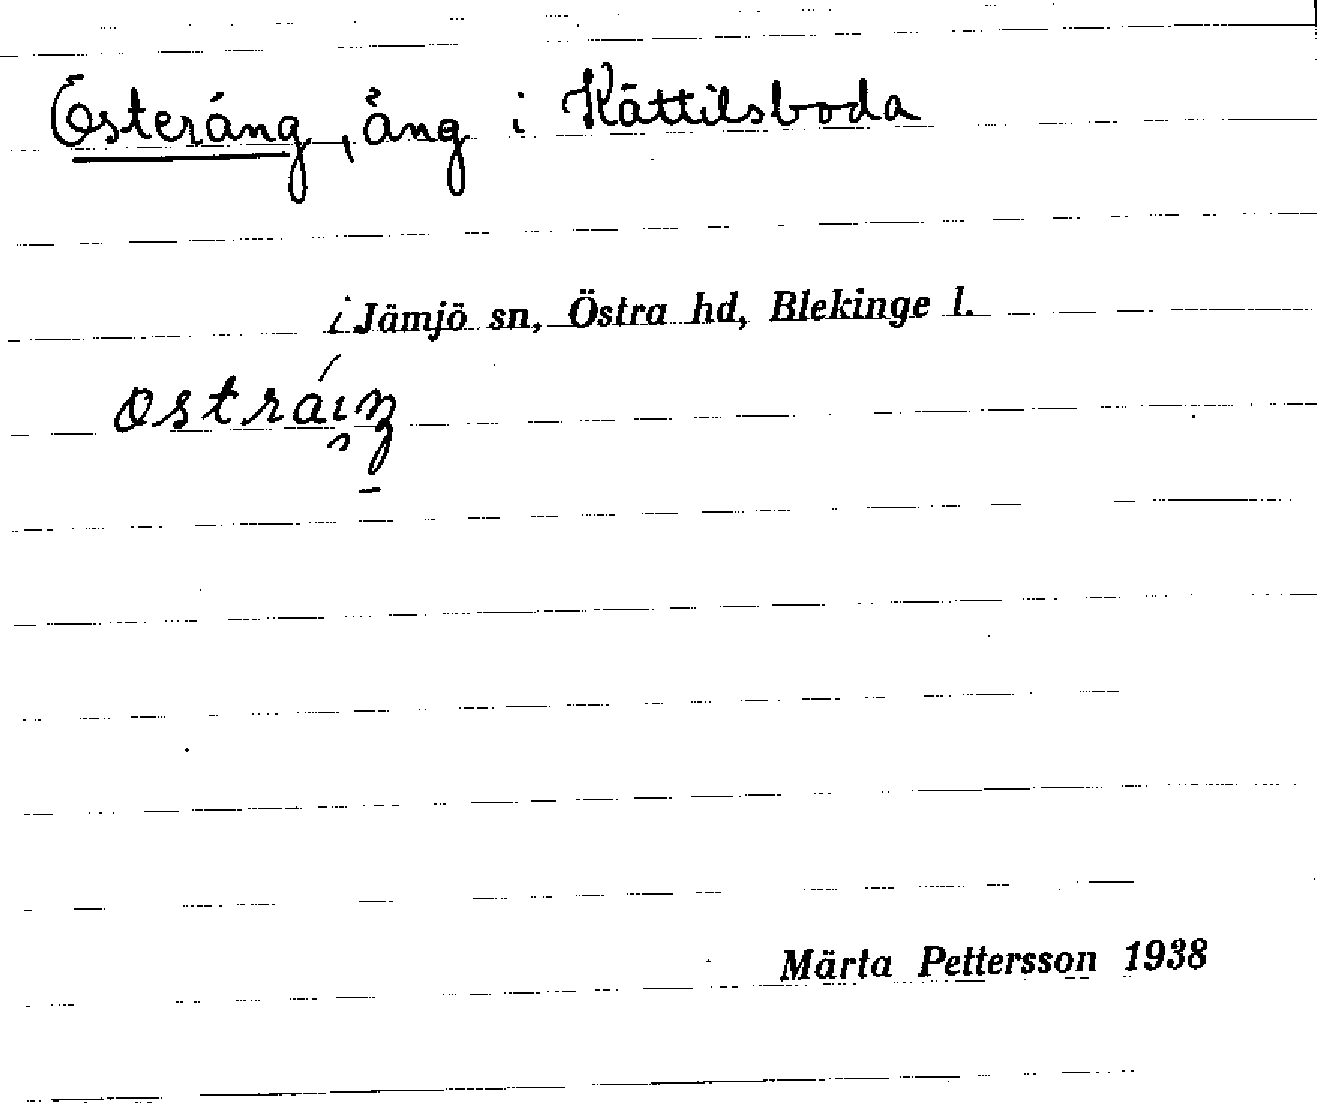 Österäng, äng i Kättilsboda
i Jämjö sn, Östra hd, Blekinge l.
Märta Pettersson 1938